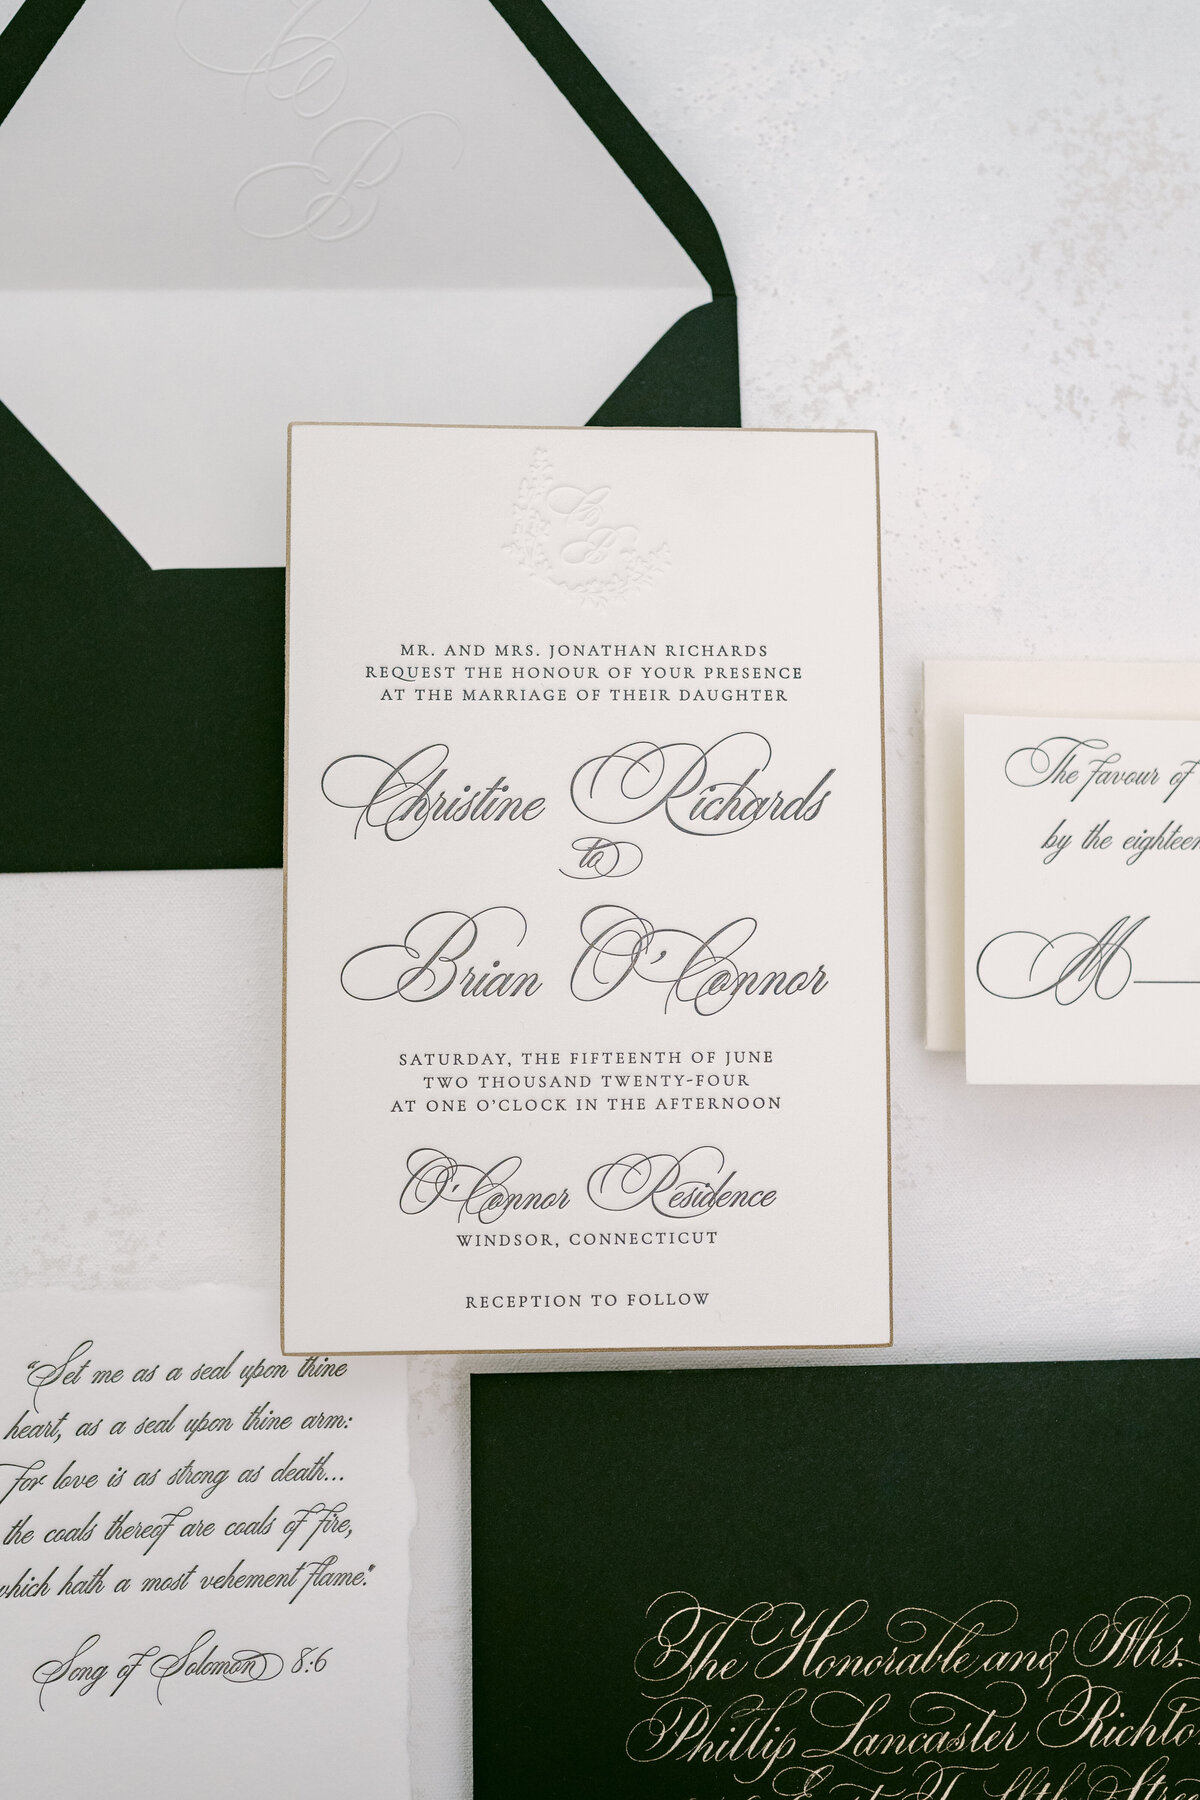 C
B
C
B
MR. AND MRS. JONATHAN RICHARDS
REQUEST THE HONOUR OF YOUR PRESENCE
AT THE MARRIAGE OF THEIR DAUGHTER
Christine Richards
to
Brian O'Connor
SATURDAY, THE FIFTEENTH OF JUNE
TWO THOUSAND TWENTY-FOUR
AT ONE O'CLOCK IN THE AFTERNOON
O'Connor Residence
WINDSOR, CONNECTICUT
RECEPTION TO FOLLOW
The favour of
by the
M
"Set me as a seal upon thine
heart, as a seal upon thine arm:
for love is as strong as death...
the coals thereof are coals of fire,
which hath a most vehement flame."
Song of Solomon 8:6
The Honorable and Mrs.
Phillip Lancaster
East